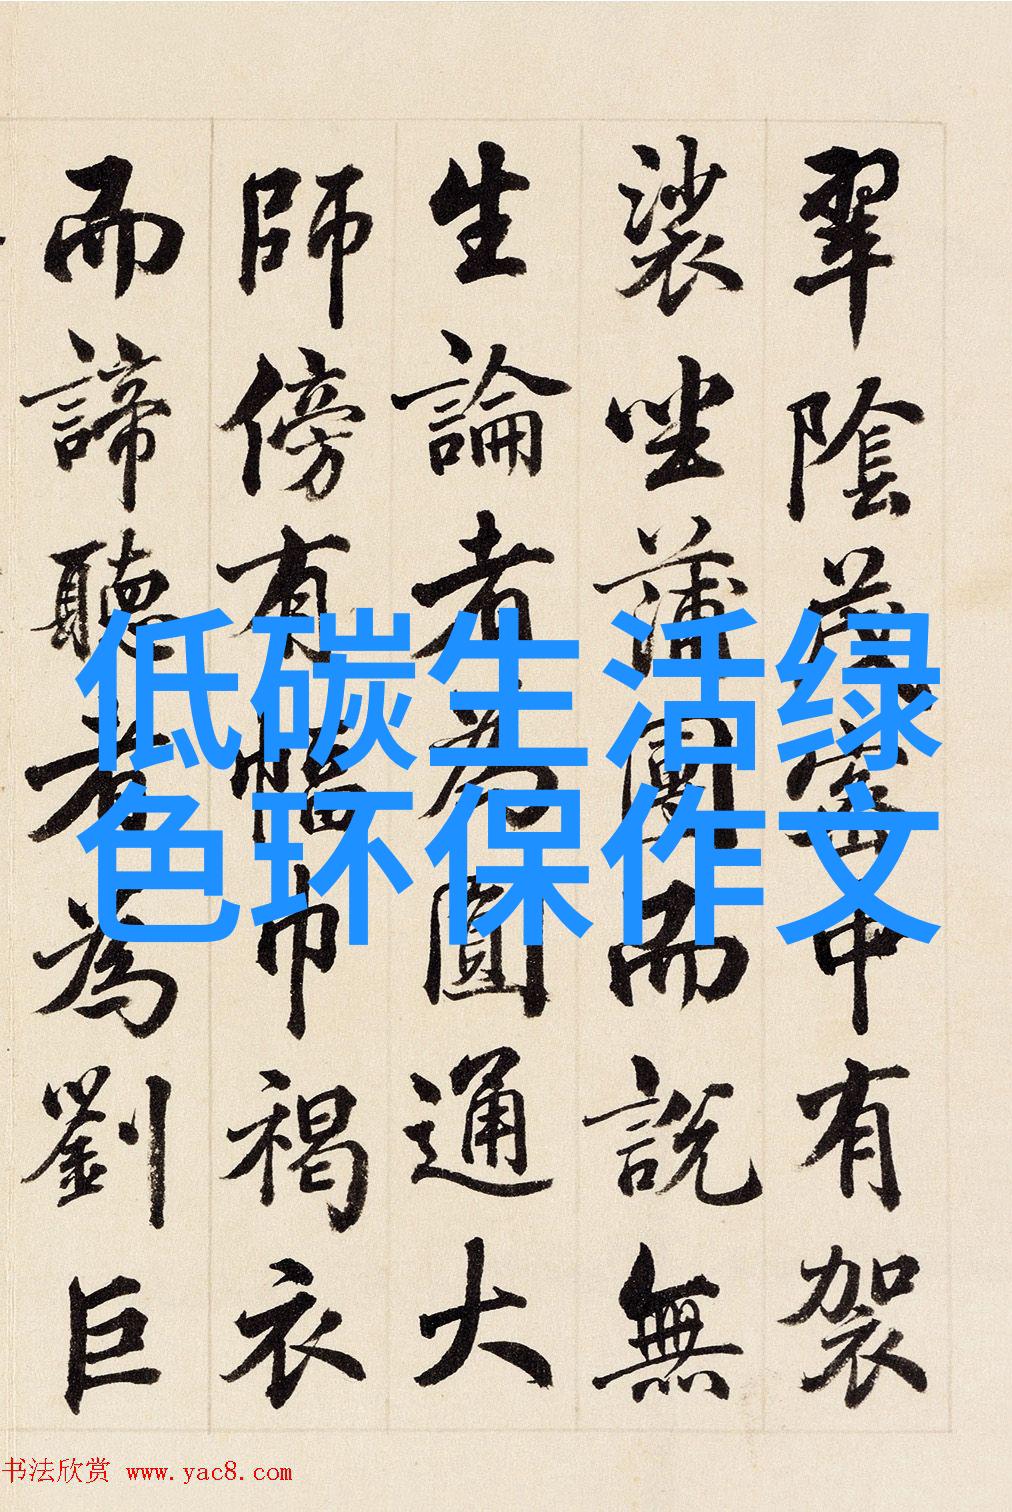 翠陰茂密中有袈
裟坐蒲團而說無
生論者為圓通大
師傍有幅巾褐衣
而諦聽者為劉巨
低碳生活绿
色环保作文
书法欣赏 www.yac8.com